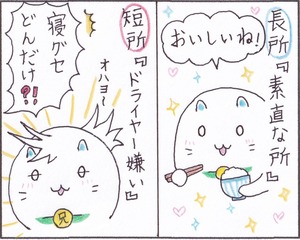 長所『素直な所』
おいしいね!
短所『ドライヤー嫌い』
オハヨ〜
寝グセ
どんだけ⁈
兄